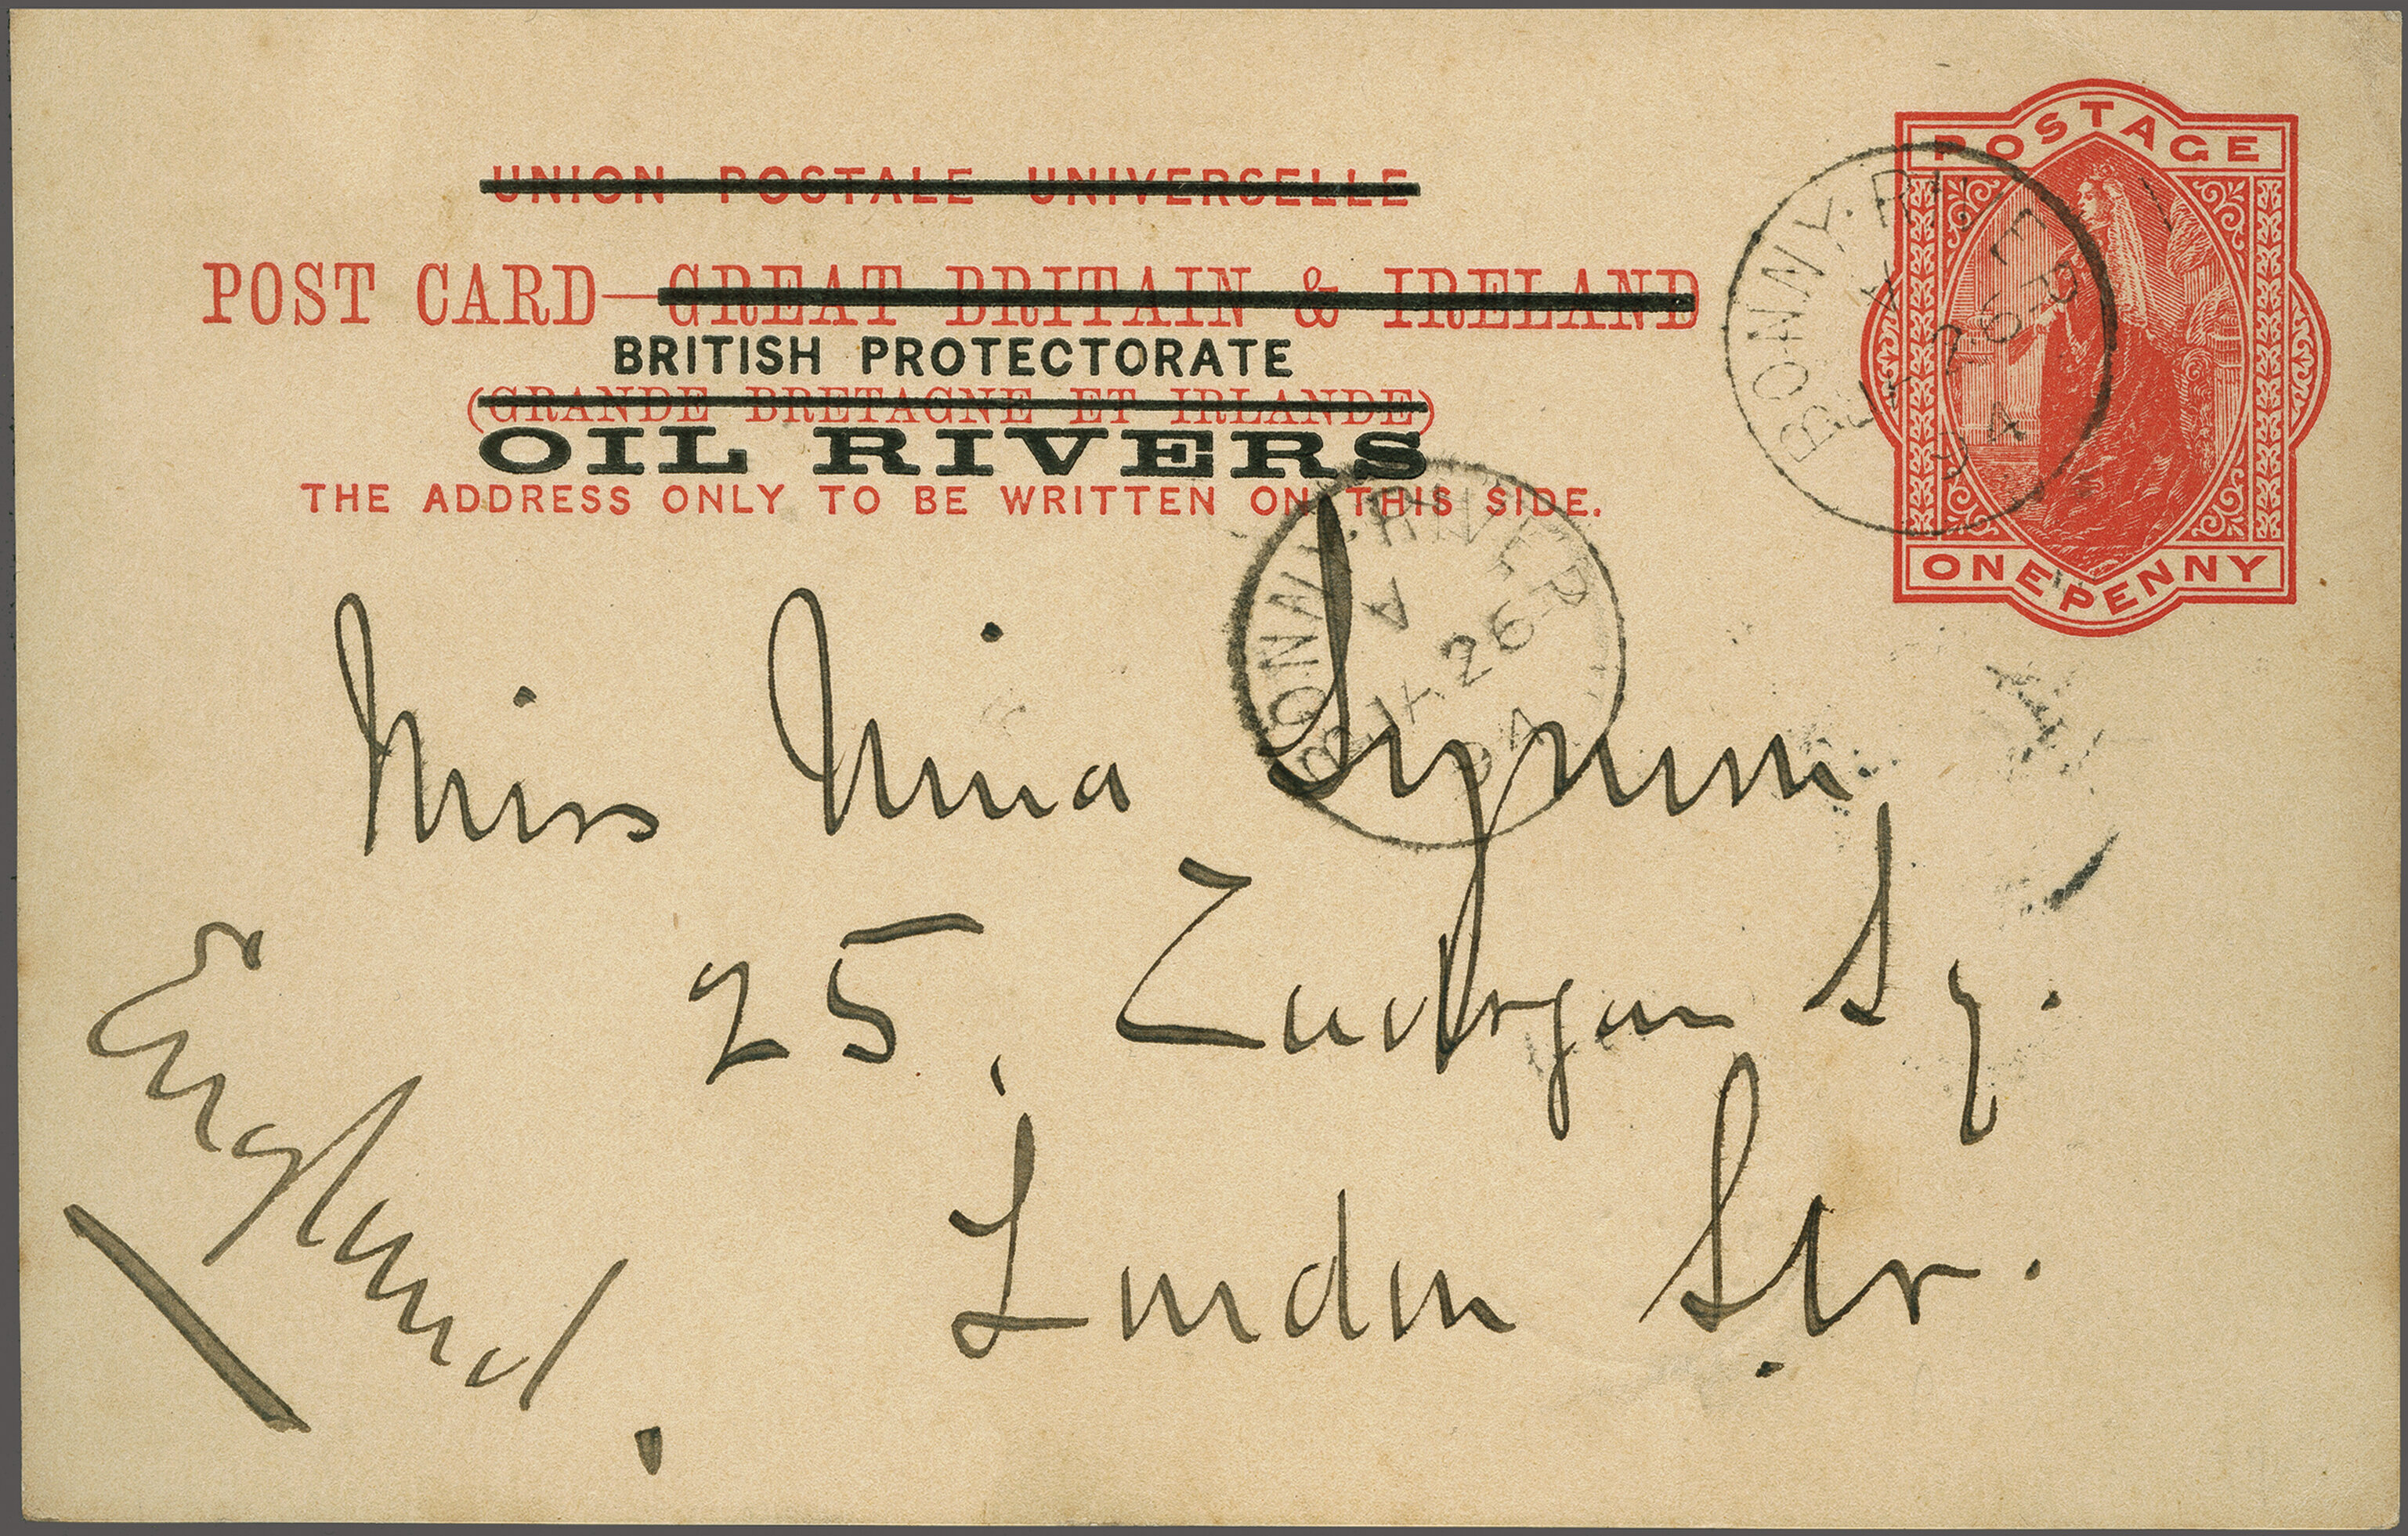 UNION POSTALE UNIVERSELLE
POST CARD—GREAT BRITAIN & IRELAND
BRITISH PROTECTORATE
(GRANDE BRETAGNE ET IRLANDE)
OIL RIVERS
THE ADDRESS ONLY TO BE WRITTEN ON THIS SIDE.
POSTAGE
ONE PENNY
BONNY·RIVER
A
26
94
BONNY·RIVER
A
26
94
Miss Nina
25, Cadogan Sq.
London
England.